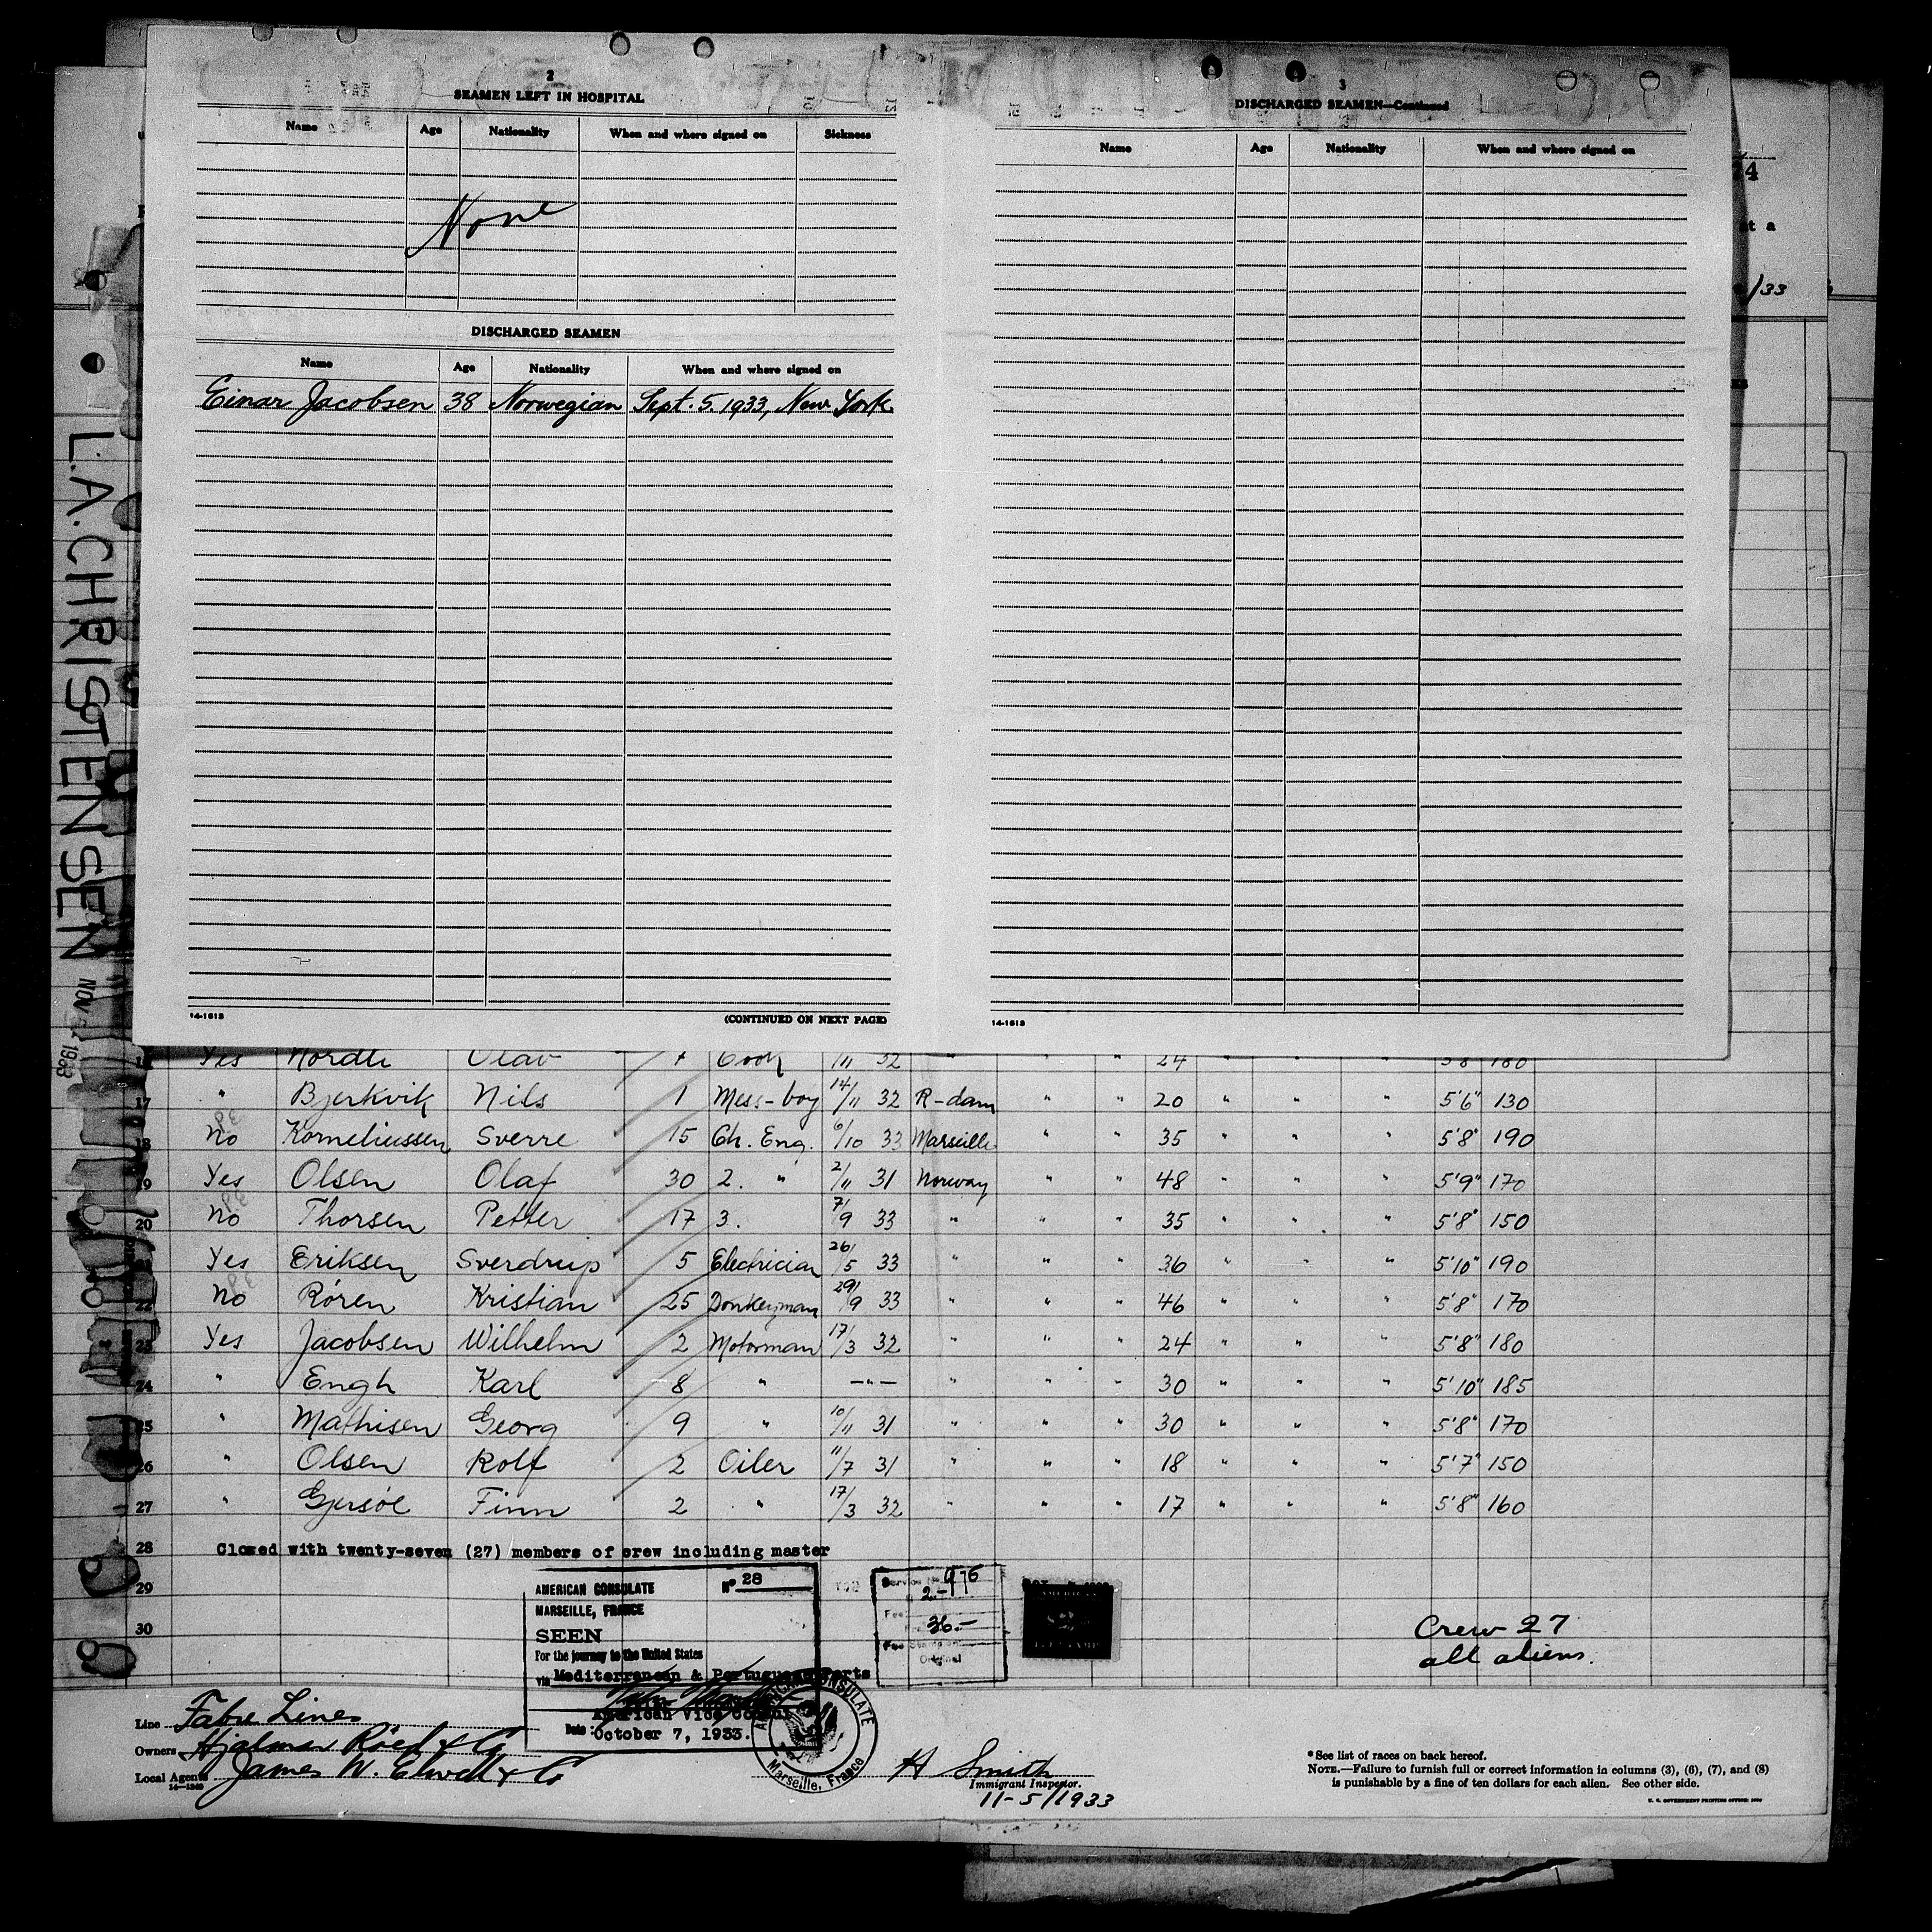 2
SEAMEN LEFT IN HOSPITAL
Name Age Nationality When and where signed on Sickness
None
DISCHARGED SEAMEN
Name Age Nationality When and where signed on
Einar Jacobsen 38 Norwegian Sept. 5. 1933, New York.
14-1613 (CONTINUED ON NEXT PAGE)
3
DISCHARGED SEAMEN—Continued
Name Age Nationality When and where signed on
14-1613
t a
/33
L.A. CHRISTENSEN
NOV 1933
Yes Olav Cook /11 32 " " " 24 " " " 5'8" 180
17 " Bjerkvik Nils 1 Mess-boy 14/11 32 R-dam " " 20 " " " 5'6" 130
18 No Korneliussen Sverre 15 Ch. Eng. 6/10 33 Marseille " " 35 " " " 5'8" 190
19 Yes Olsen Olaf 30 2. " 2/11 31 Norway " " 48 " " " 5'9" 170
20 No Thorsen Petter 17 3. 7/9 33 " " " 35 " " " 5'8" 150
21 Yes Eriksen Sverdrup 5 Electrician 26/5 33 " " " 36 " " " 5'10" 190
22 No Róren Kristian 25 Donkeyman 29/9 33 " " " 46 " " " 5'8" 170
23 Yes Jacobsen Wilhelm 2 Motorman 17/3 32 " " " 24 " " " 5'8" 180
24 " Engh Karl 8 " —"— " " " 30 " " " 5'10" 185
25 " Mathisen Georg 9 " 10/11 31 " " " 30 " " " 5'8" 170
26 " Olsen Rolf 2 Oiler 11/7 31 " " " 18 " " " 5'7" 150
27 " Finn 2 " 17/3 32 " " " 17 " " " 5'8" 160
28 Closed with twenty-seven (27) members of crew including master
29
30
AMERICAN CONSULATE Nº 28
MARSEILLE, FRANCE
SEEN
For the journey to the United States
via Mediterranean & Portuguese Ports
American Vice Consul
Date: October 7, 1933.
AMERICAN CONSULATE
Marseille, France
Service 976
2.-
Fee
36.-
Fee Stamp on
Original
Crew 27
all aliens.
Line Fabre Lines
Owners Hjalmar Röed & Co
Local Agents James W. Elwell & Co
14-1240
H Smith
Immigrant Inspector.
11-5/1933
*See list of races on back hereof.
NOTE.—Failure to furnish full or correct information in columns (3), (6), (7), and (8)
is punishable by a fine of ten dollars for each alien. See other side.